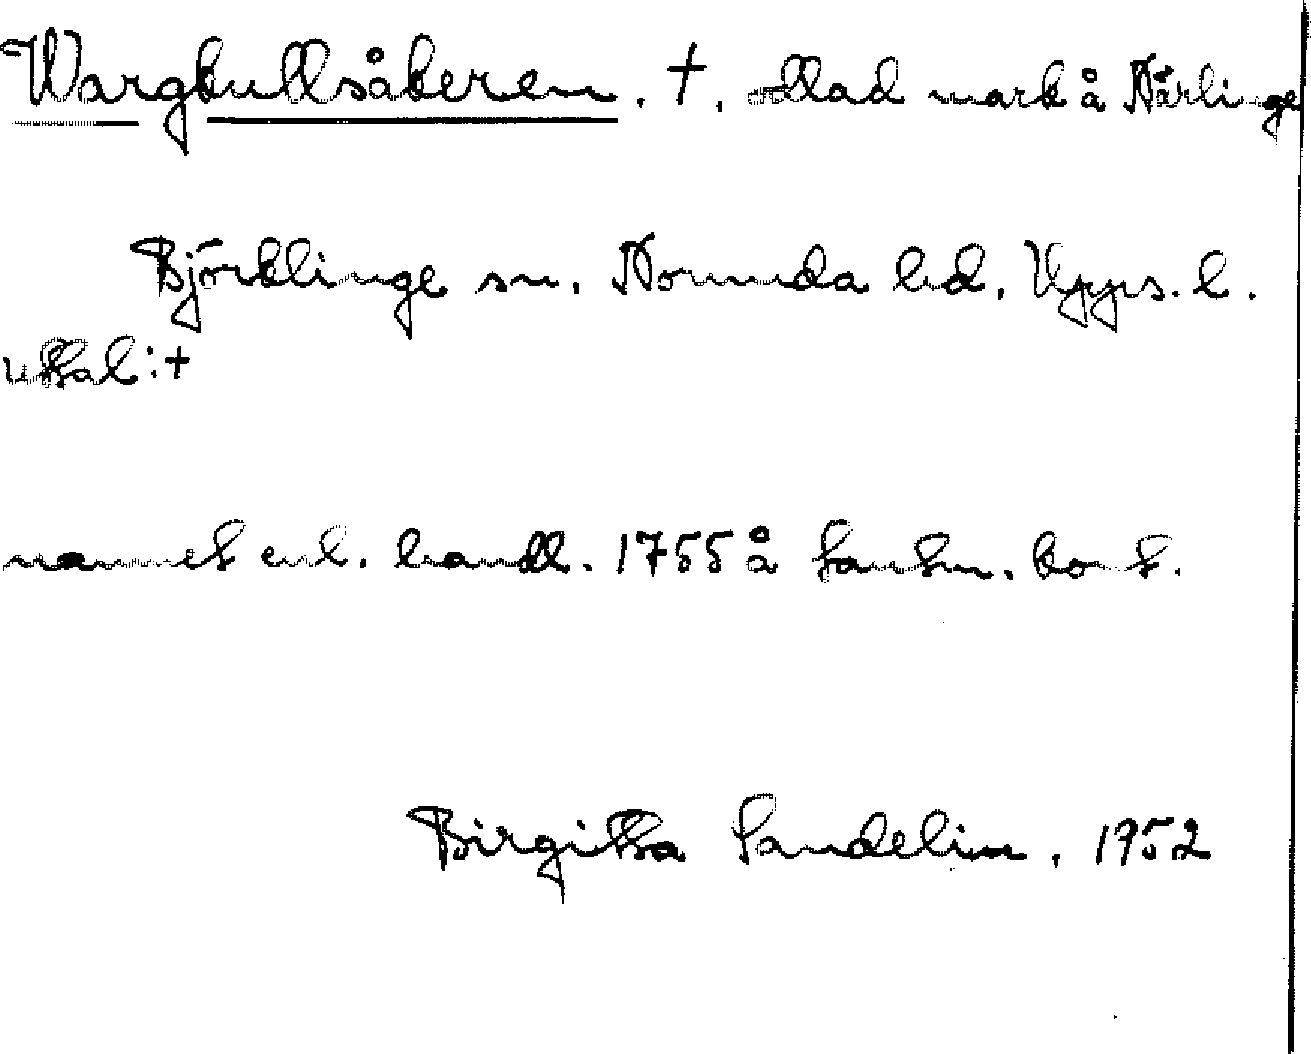 Wargkullsåkeren. †. odlad mark å Närlinge
Björklinge sn. Norunda hd. Upps. l.
uttal: †
namnet enl. handl. 1755 å Lantm. kont.
Birgitta Sandelin. 1952